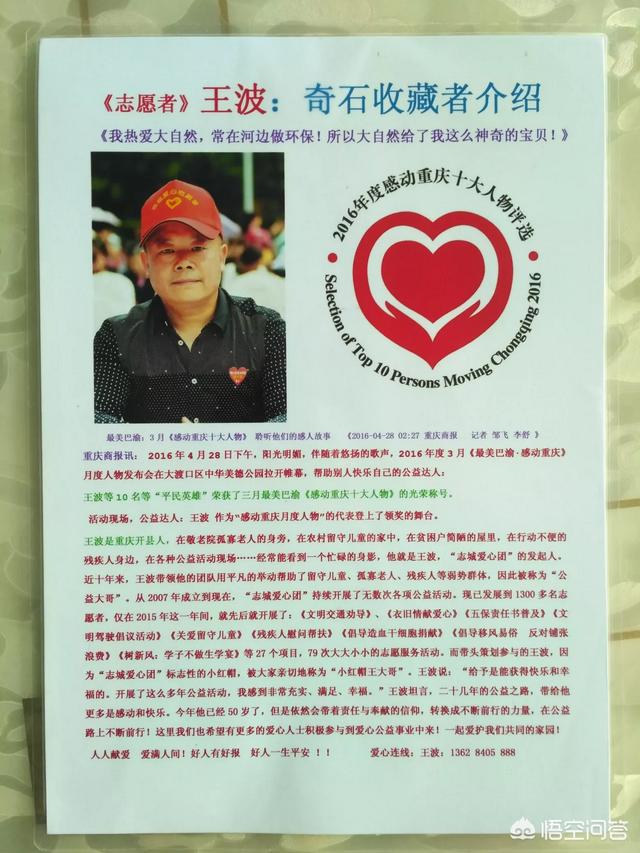 《志愿者》王波：奇石收藏者介绍
《我热爱大自然，常在河边做环保！所以大自然给了我这么神奇的宝贝！》
2016年度感动重庆十大人物评选
Selection of Top 10 Persons Moving Chongqing 2016
最美巴渝：3月《感动重庆十大人物》 聆听他们的感人故事 《2016-04-28 02:27 重庆商报 记者 邹飞 李舒 》
重庆商报讯： 2016年4月28日下午，阳光明媚，伴随着悠扬的歌声，2016年度3月《最美巴渝·感动重庆》
月度人物发布会在大渡口区中华美德公园拉开帷幕，帮助别人快乐自己的公益达人：
王波等10名等“平民英雄”荣获了三月最美巴渝《感动重庆十大人物》的光荣称号。
活动现场，公益达人：王波 作为“感动重庆月度人物”的代表登上了领奖的舞台。
王波是重庆开县人，在敬老院孤寡老人的身旁，在农村留守儿童的家中，在贫困户简陋的屋里，在行动不便的
残疾人身边，在各种公益活动现场……经常能看到一个忙碌的身影，他就是王波，“志城爱心团”的发起人。
近十年来，王波带领他的团队用平凡的举动帮助了留守儿童、孤寡老人、残疾人等弱势群体，因此被称为“公
益大哥”。从2007年成立到现在，“志城爱心团”持续开展了无数次各项公益活动。现已发展到1300多名志
愿者，仅在2015年这一年间，就先后就开展了：《文明交通劝导》、《衣旧情献爱心》《五保责任书普及》《文
明驾驶倡议活动》《关爱留守儿童》《残疾人慰问帮扶》《倡导造血干细胞捐献》《倡导移风易俗 反对铺张
浪费》《树新风：学子不做生学宴》等27个项目，79次大大小小的志愿服务活动。而带头策划参与的王波，因
为“志城爱心团”标志性的小红帽，被大家亲切地称为“小红帽王大哥”。王波说：“给予是能获得快乐和幸
福的。开展了这么多年公益活动，我感到非常充实、满足、幸福。”王波坦言，二十几年的公益之路，带给他
更多是感动和快乐。今年他已经50岁了，但是依然会带着责任与奉献的信仰，转换成不断前行的力量，在公益
路上不断前行！这里我们也希望有更多的爱心人士积极参与到爱心公益事业中来！一起爱护我们共同的家园！
人人献爱 爱满人间！好人有好报 好人一生平安 ！！ 爱心连线：王波：1362 8405 888
悟空问答